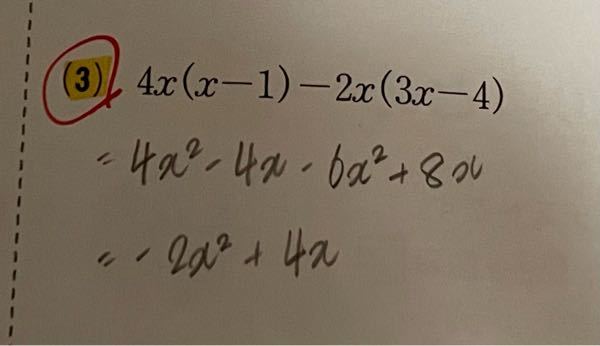 (3) 4x(x-1)-2x(3x-4)
= 4x² - 4x - 6x² + 8x
= - 2x² + 4x